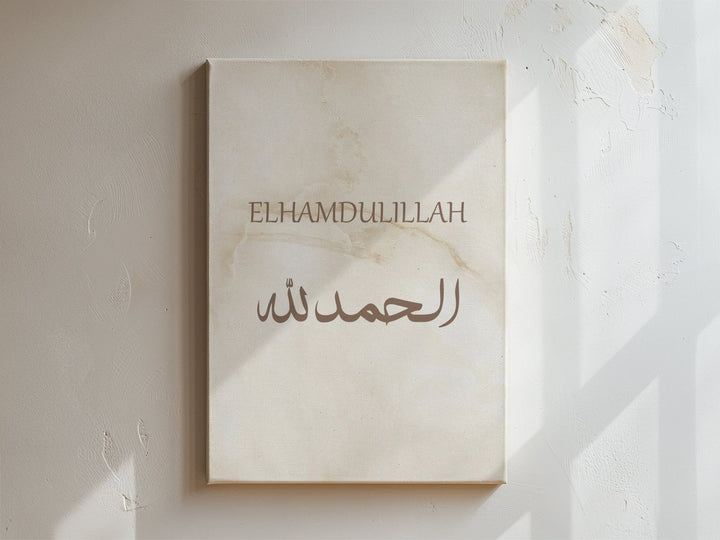 ELHAMDULILLAH
الحمدلله